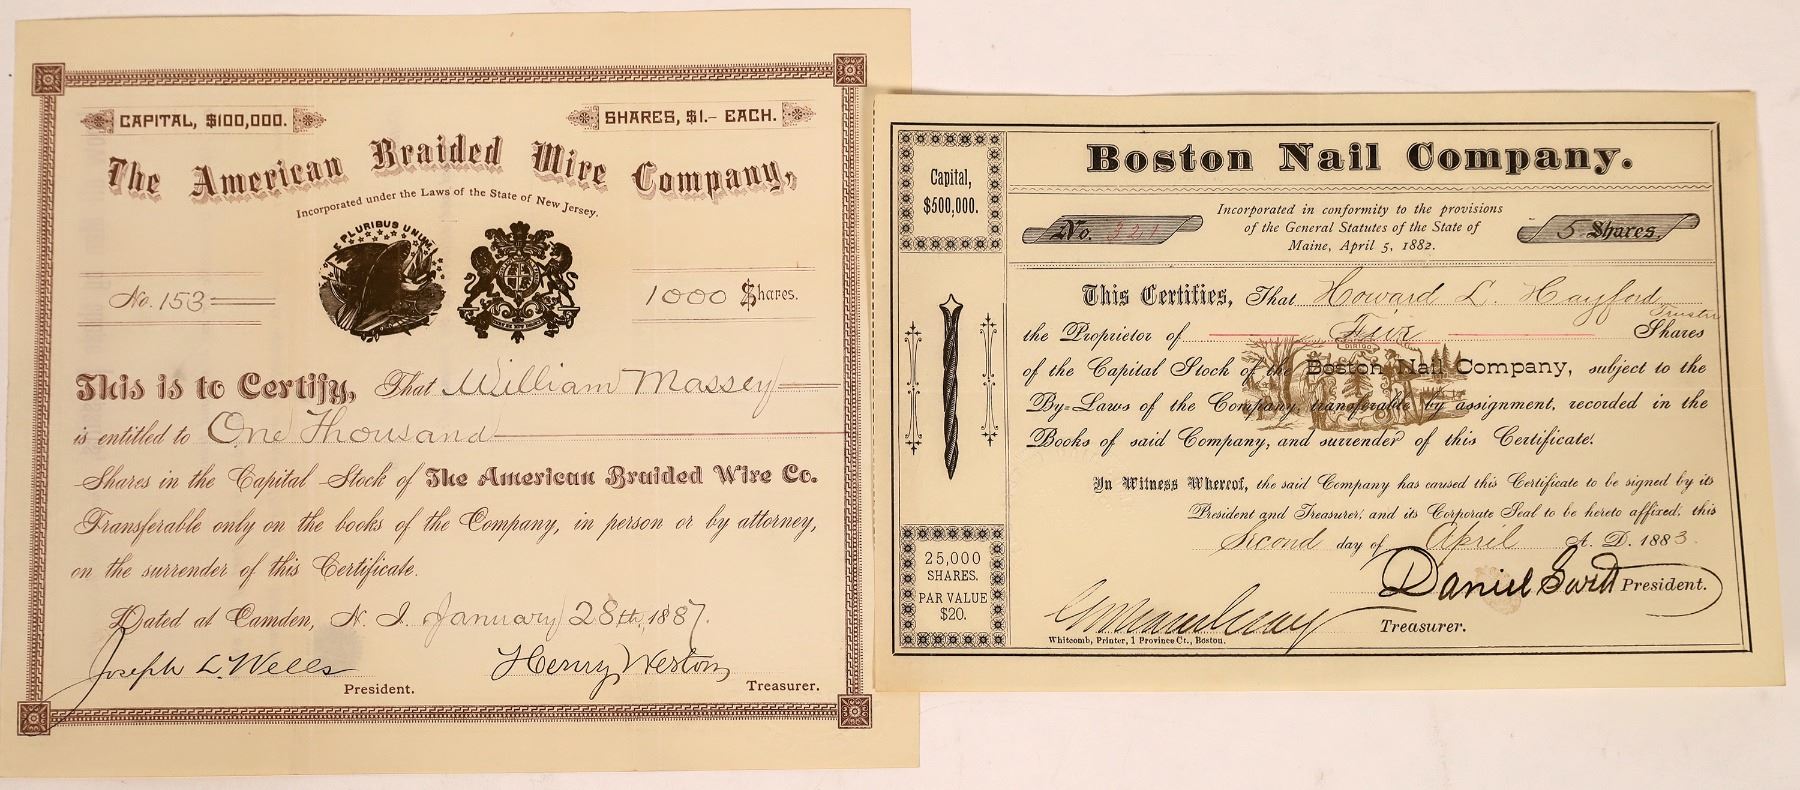 CAPITAL, $100,000.
SHARES, $1.- EACH.
The American Braided Wire Company,
Incorporated under the Laws of the State of New Jersey.
E PLURIBUS UNUM
No. 153
1000 Shares.
This is to Certify, That William Massey
is entitled to One Thousand
Shares in the Capital Stock of The American Braided Wire Co.
Transferable only on the books of the Company, in person or by attorney,
on the surrender of this Certificate.
Dated at Camden, N. J. January 28th, 1887.
Joseph L. Wells
President.
Henry Weston
Treasurer.
Boston Nail Company.
Capital,
$500,000.
No. 321
Incorporated in conformity to the provisions
of the General Statutes of the State of
Maine, April 5, 1882.
5 Shares.
This Certifies, That Howard L. Hayford
Trustee
the Proprietor of Five Shares
DIRIGO
of the Capital Stock of the Boston Nail Company, subject to the
By=Laws of the Company, transferable by assignment, recorded in the
Books of said Company, and surrender of this Certificate.
In Witness Whereof, the said Company has caused this Certificate to be signed by its
President and Treasurer, and its Corporate Seal to be hereto affixed, this
Second day of April A. D. 1883.
25,000
SHARES.
PAR VALUE
$20.
Daniel President.
Treasurer.
Whitcomb, Printer, 1 Province Ct., Boston.